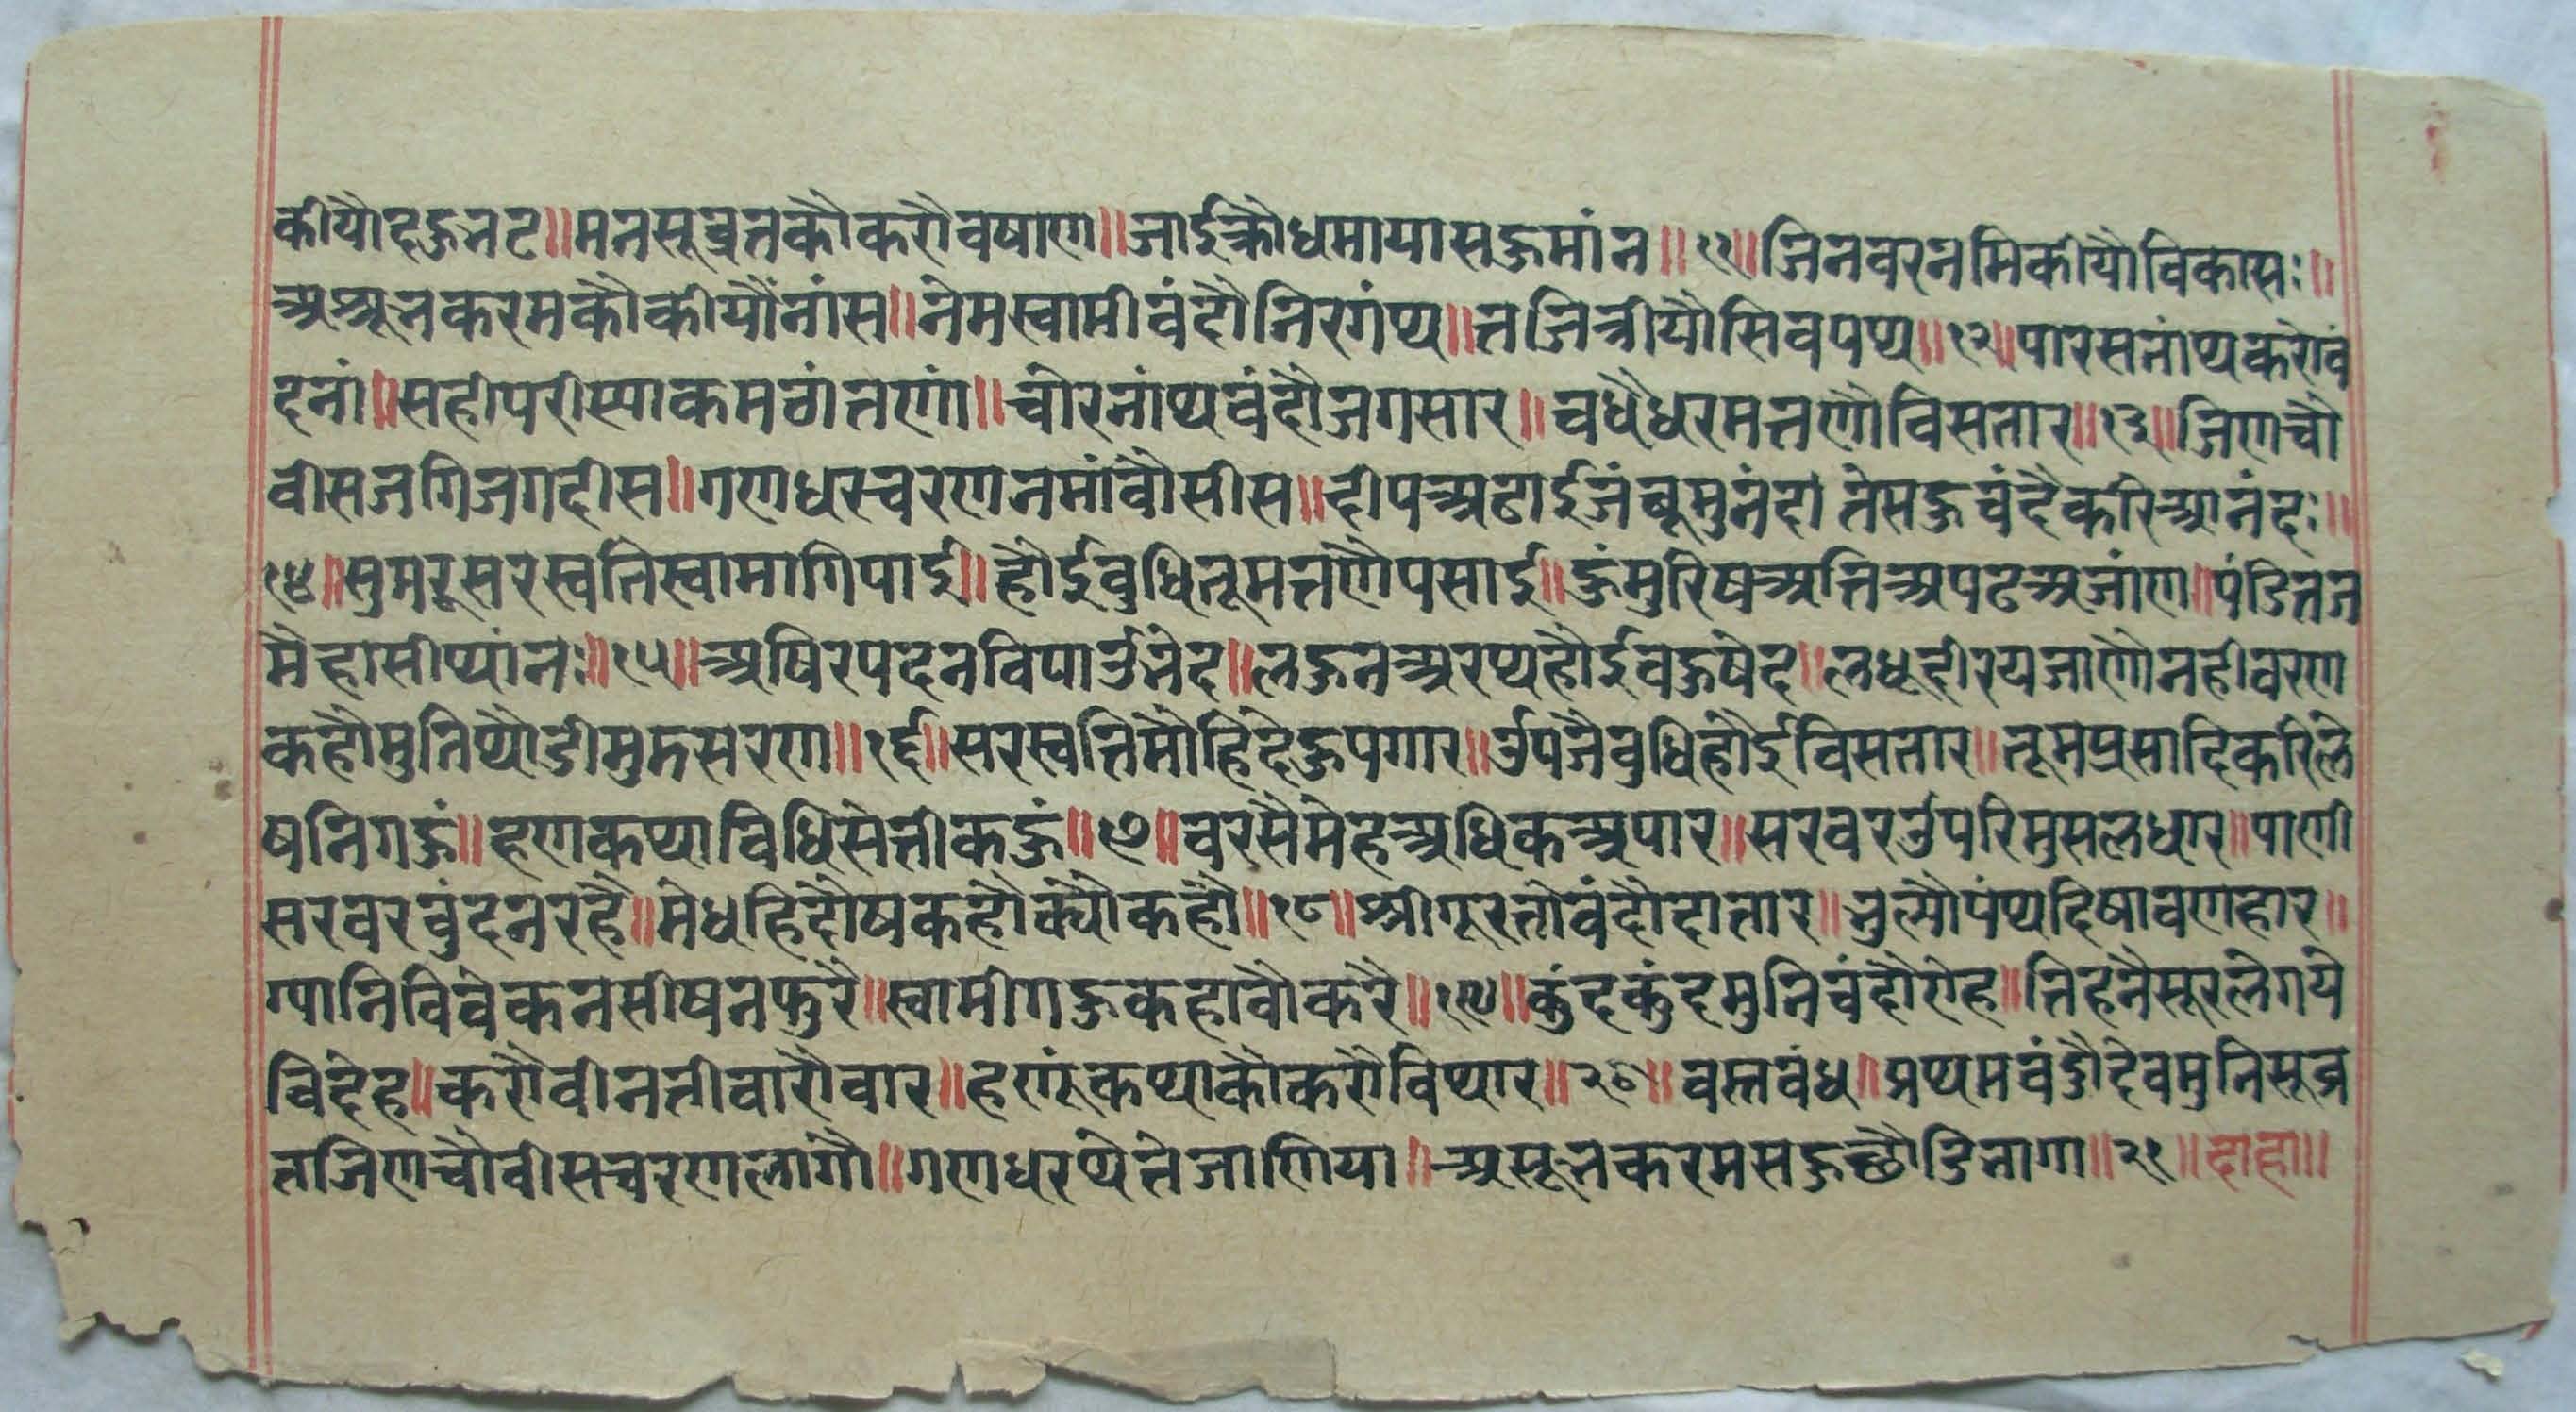 कीयौ दहुजनट॥ मनसूव्रतकौकरौवषाण॥ जाईक्रौधमायासहुमांन॥११॥ जिनवरनमिकीयौविकासः॥
अश्रूनकरमकौकीयौंनांस॥ नेमस्वामीवंदौनिरगंथ॥ तजित्रीयौसिवपथ॥१२॥ पारसनांथकरौवं
दनां॥ सहीपरीस्याकमठांतणां॥ वीरनांथवंदौजगसार॥ वधैधरमतणौविसतार॥१३॥ जिणचौ
वीसजगिजगदीस॥ गणधरचरणनमांवौसीस॥ दीपअढाईजंबूमुनंदा तेसहुवंदैकरिआनंदः॥
१४॥ सुमरूसरस्वतिस्वामागिपाई॥ हौईबुधितूमतणैपसाई॥ हुंमुरिषअतिअपढअजांण॥ पंडितज
मैहासीथांनः॥१५॥ अषिरपदनविपाउंनेद॥ लहुनअरथहौईवहुषेद॥ लधूदीरयजाणौनहीवरण
कहौमुनिथौडीमुझसरण॥१६॥ सरस्वतिमौहिदेहुपगार॥ उपजैबुधिहौईविसतार॥ तूमप्रसादिकरिले
षनिगहुं॥ हणकथाविधिसेतीकहुं॥१७॥ वरसैमेहअधिकअपार॥ सरवरउपरिमुसलधार॥ पाणी
सरवरवुंदनरहै॥ मेधहिदौषकहौक्यौकहौ॥१८॥ श्रीगूरतोवंदौदातार॥ भुल्यौपंथदिषावणहार॥
ग्यानिविवेकनसीषनफुरै॥ स्वामीगहुकहावौकरै॥१९॥ कुंदकुंदमुनिवंदौरोह॥ तिहनैसूरलेगये
विदेह॥ करौवीनतीवारौवार॥ हणूंकथाकौकरौविथार॥२०॥ वस्तवंध॥ प्रथमवंडौदेवमुनिसूव्र
तजिणचौवीसचरणलागौ॥ गणधरथेतेजाणिया॥ असूनकरमसहुछौडिनागा॥२१॥ दाहा॥